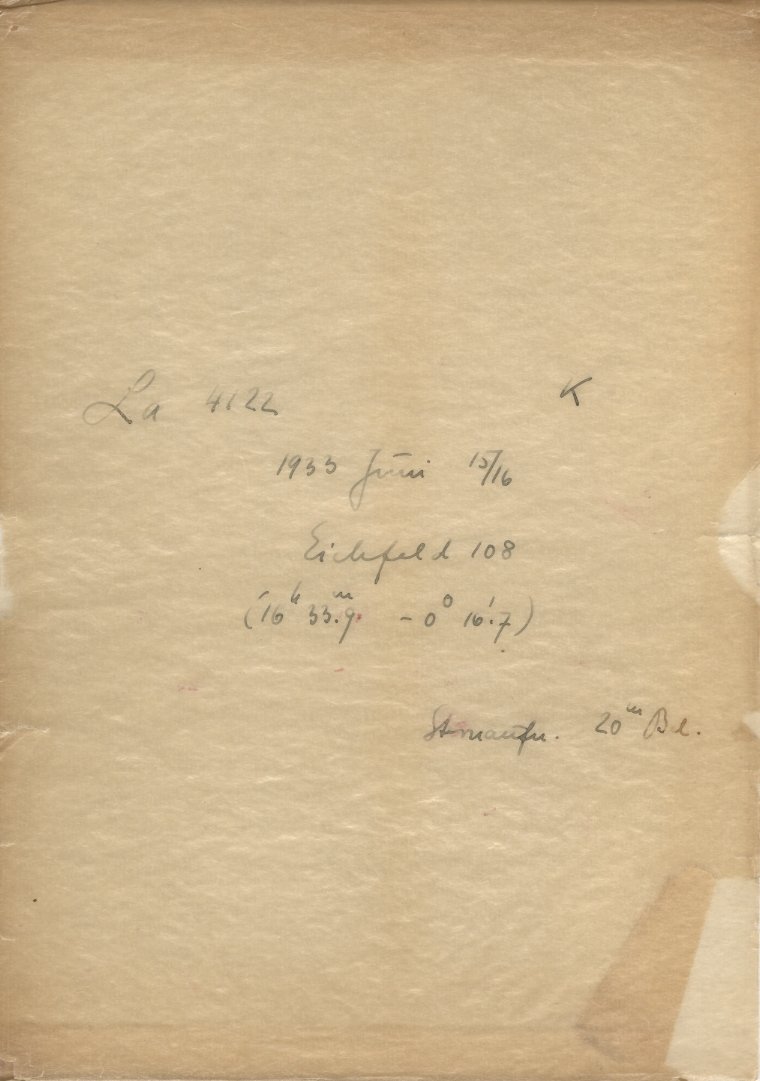 La 4122 K
1933 Juni 15/16
Eichfeld 108
(16ʰ 33ᵐ.9 - 0⁰ 16'.7)
Stmaufn. 20ᵐ Bl.